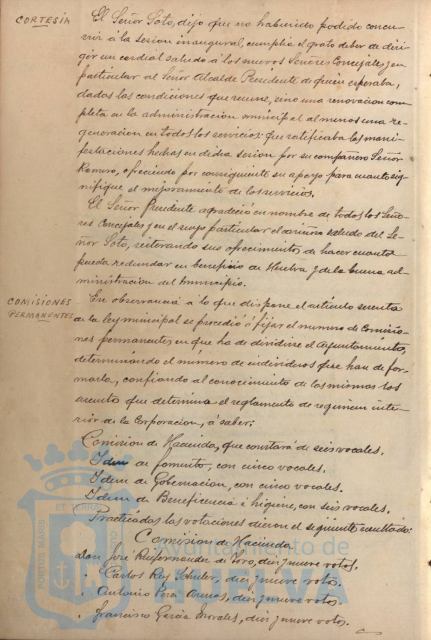 CORTESÍA
El Señor Soto, dijo que no habiendo podido concu-
rrir á la sesion inaugural, cumplia el grato deber de diri-
gir un cordial saludo á los nuevos Señores Concejales y en
particular al Señor Alcalde Presidente de quien esperaba,
dadas las condiciones que reune, sino una renovacion com-
pleta en la administracion municipal al menos una re-
generacion en todos los servicios: que ratificaba las mani-
festaciones hechas en dicha sesion por su compañero Señor
Romero, ofreciendo por consiguiente su apoyo para cuanto sig-
nifique el mejoramiento de los servicios.
El Señor Presidente agradeció en nombre de todos los Seño-
res Concejales y en el suyo particular el cariñoso saludo del Se-
ñor Soto, reiterando sus ofrecimientos de hacer cuanto
pueda redundar en beneficio de Huelva y de la buena ad-
ministracion del municipio.
COMISIONES
PERMANENTES
En observancia á lo que dispone el artículo sesenta
de la ley municipal se procedió á fijar el numero de Comisio-
nes permanentes en que ha de dividirse el Ayuntamiento,
determinándo el número de individuos que han de for-
marla, confiando al conocimiento de las mismas los
asuntos que determina el reglamento de regimen inte-
rior de la Corporacion, á saber:
Comision de Hacienda, que constará de seis vocales.
Idem de fomento, con cinco vocales.
Idem de Gobernacion, con cinco vocales.
Idem de Beneficencia é higiene, con seis vocales.
Practicadas las votaciones dieron el siguiente resultado:
Comision de Hacienda
Don José de Toro, diez y nueve votos.
" Carlos Rey, diez y nueve votos.
" Antonio, diez y nueve votos.
" Francisco García Morales, diez y nueve votos.
PORTUS MARIS ET TERRAE CUSTODIA
Ayuntamiento de
HUELVA